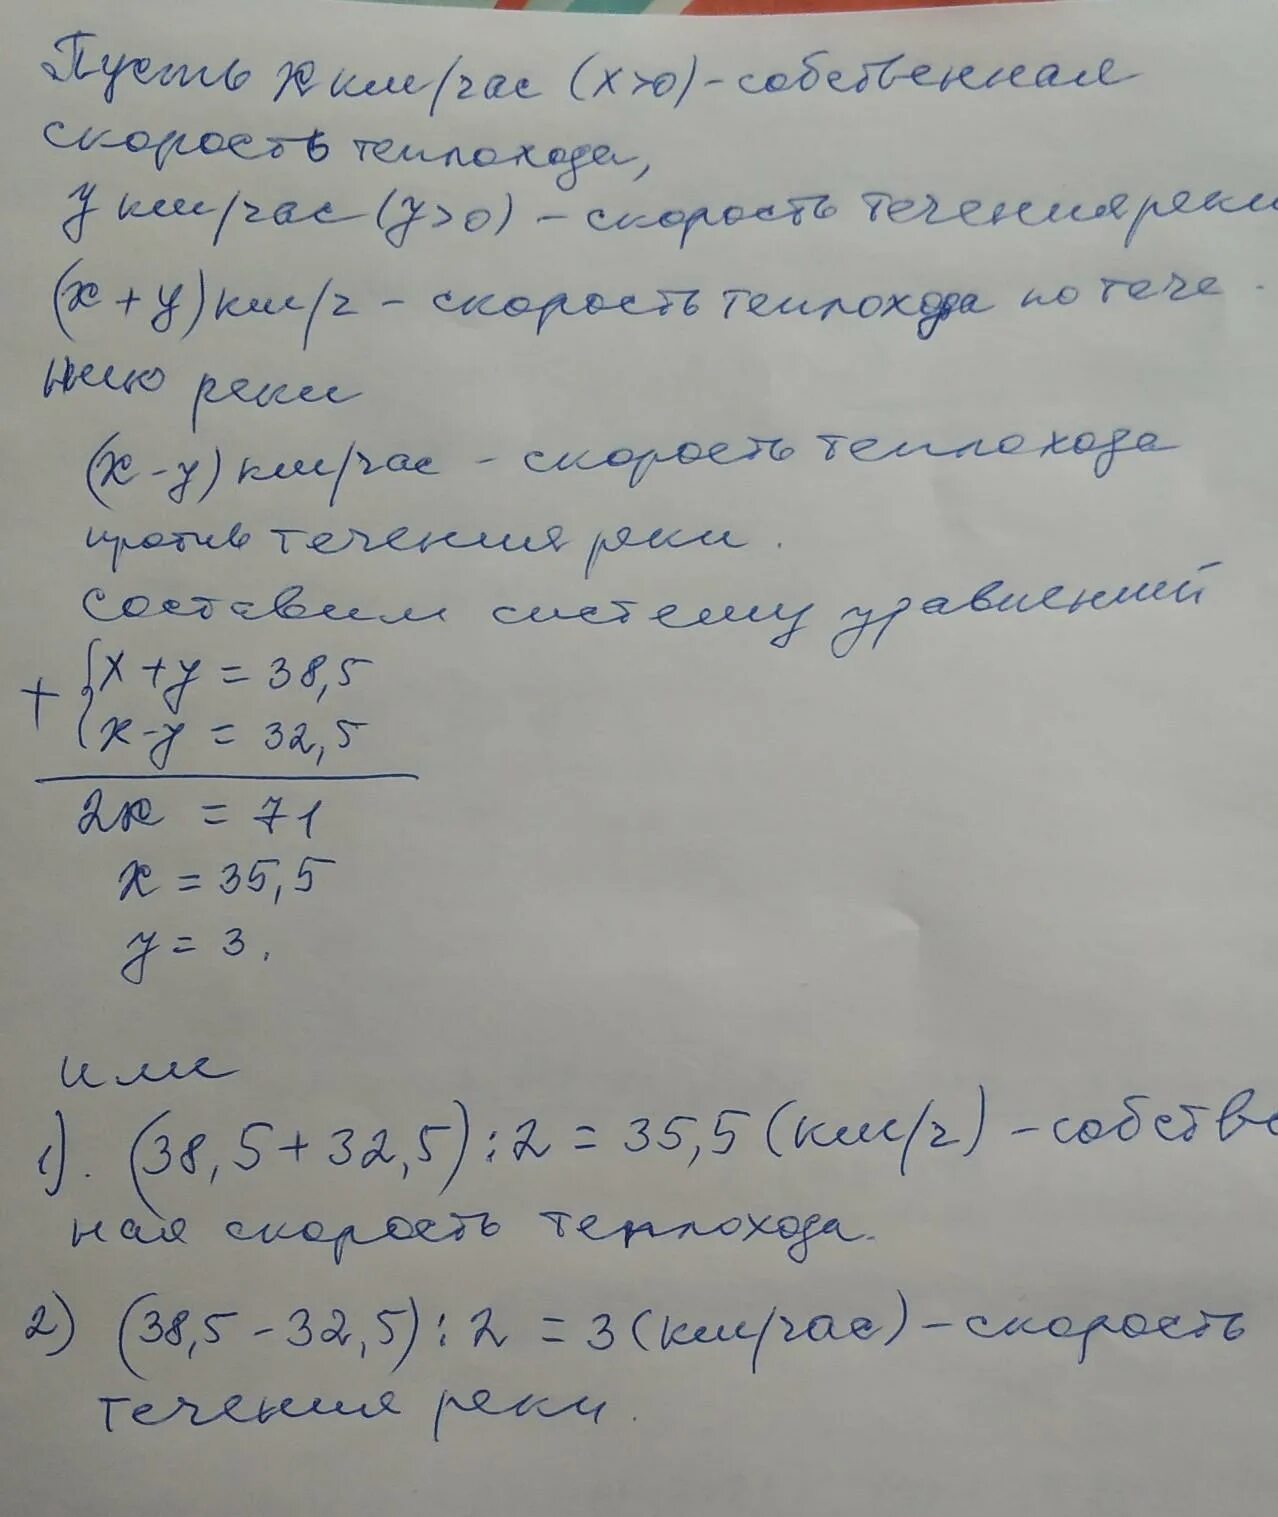 Пусть х км/час (х>0) - собственная
скорость теплохода,
у км/час (у>0) - скорость течения реки
(х + у) км/ч - скорость теплохода по тече -
нию реки
(х - у) км/час - скорость теплохода
против течения реки.
Составим систему уравнений
+ { х + у = 38,5
{ х - у = 32,5
2х = 71
х = 35,5
у = 3.
или
1). (38,5 + 32,5) : 2 = 35,5 (км/ч) - собстве
ная скорость теплохода.
2) (38,5 - 32,5) : 2 = 3 (км/час) - скорость
течения реки.